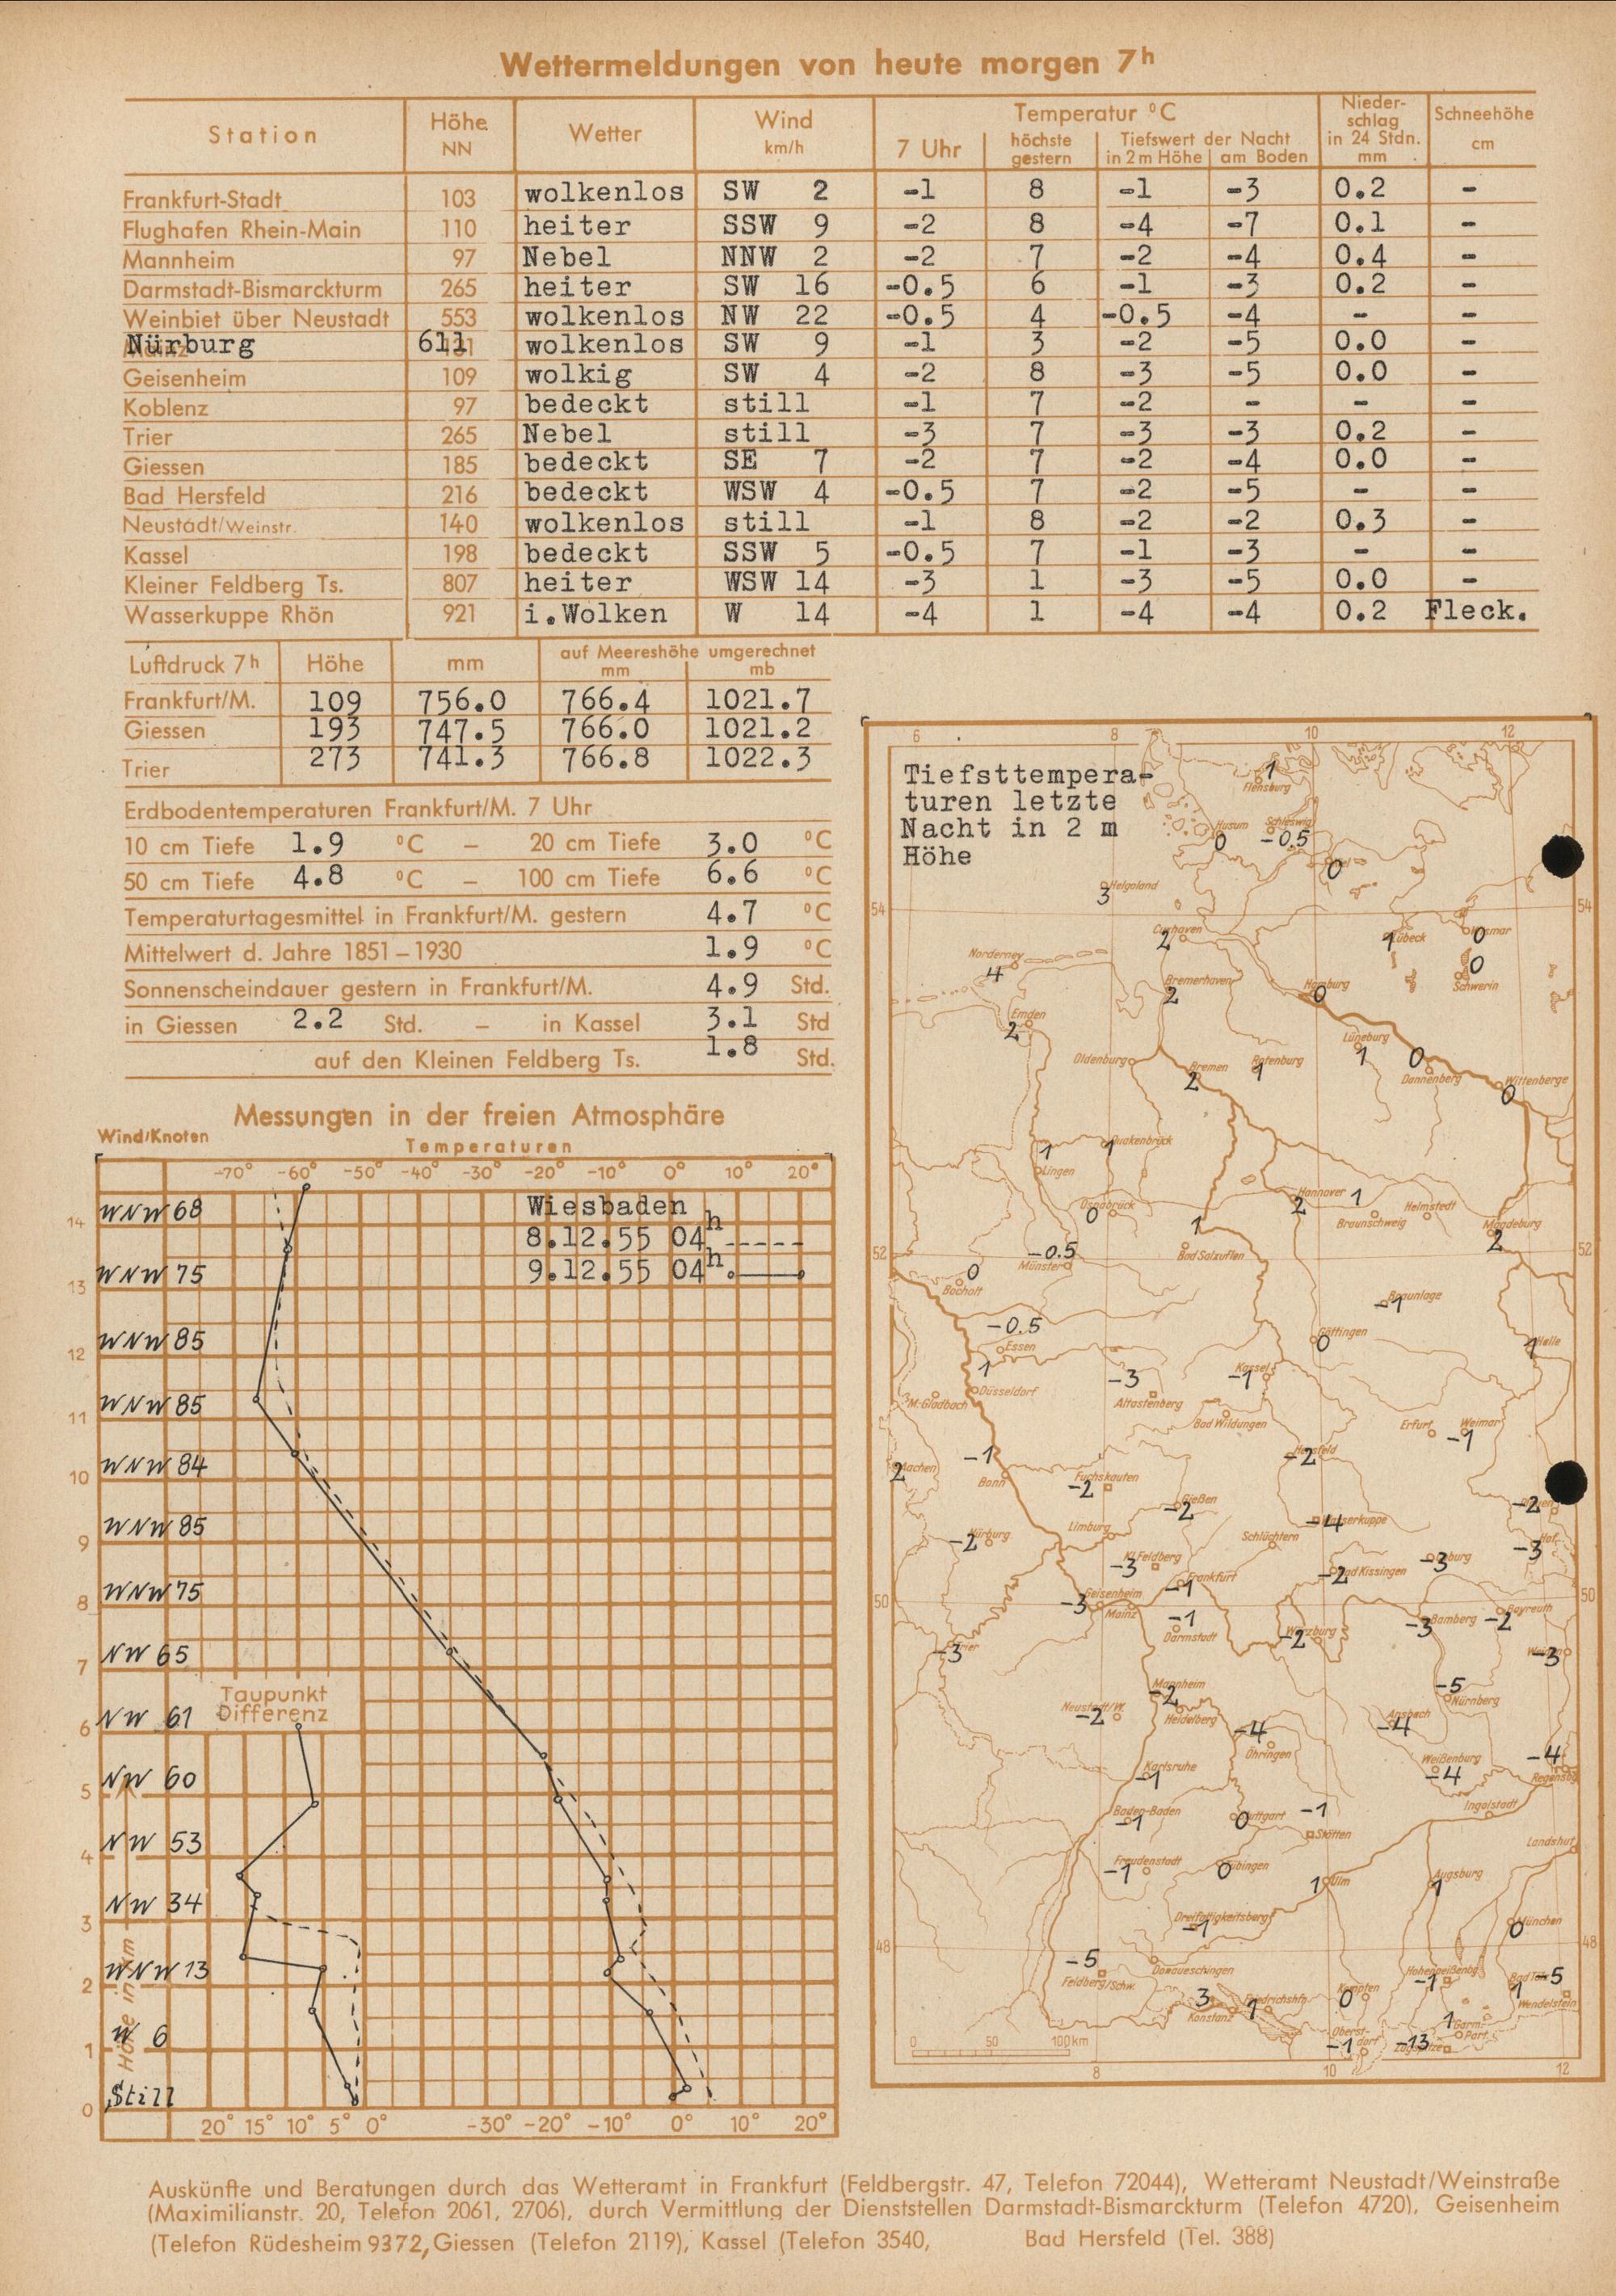 Wettermeldungen von heute morgen 7h
Station Höhe NN Wetter Wind km/h Temperatur °C 7 Uhr höchste gestern Tiefswert der Nacht in 2m Höhe am Boden Niederschlag in 24 Stdn. mm Schneehöhe cm
Frankfurt-Stadt 103 wolkenlos SW 2 -1 8 -1 -3 0.2 -
Flughafen Rhein-Main 110 heiter SSW 9 -2 8 -4 -7 0.1 -
Mannheim 97 Nebel NNW 2 -2 7 -2 -4 0.4 -
Darmstadt-Bismarckturm 265 heiter SW 16 -0.5 6 -1 -3 0.2 -
Weinbiet über Neustadt 553 wolkenlos NW 22 -0.5 4 -0.5 -4 - -
Nürburg 611 wolkenlos SW 9 -1 3 -2 -5 0.0 -
Geisenheim 109 wolkig SW 4 -2 8 -3 -5 0.0 -
Koblenz 97 bedeckt still -1 7 -2 - - -
Trier 265 Nebel still -3 7 -3 -3 0.2 -
Giessen 185 bedeckt SE 7 -2 7 -2 -4 0.0 -
Bad Hersfeld 216 bedeckt WSW 4 -0.5 7 -2 -5 - -
Neustadt/Weinstr. 140 wolkenlos still -1 8 -2 -2 0.3 -
Kassel 198 bedeckt SSW 5 -0.5 7 -1 -3 - -
Kleiner Feldberg Ts. 807 heiter WSW 14 -3 1 -3 -5 0.0 -
Wasserkuppe Rhön 921 i.Wolken W 14 -4 1 -4 -4 0.2 Fleck.
Luftdruck 7h Höhe mm auf Meereshöhe umgerechnet mm mb
Frankfurt/M. 109 756.0 766.4 1021.7
Giessen 193 747.5 766.0 1021.2
Trier 273 741.3 766.8 1022.3
Erdbodentemperaturen Frankfurt/M. 7 Uhr
10 cm Tiefe 1.9 °C – 20 cm Tiefe 3.0 °C
50 cm Tiefe 4.8 °C – 100 cm Tiefe 6.6 °C
Temperaturtagesmittel in Frankfurt/M. gestern 4.7 °C
Mittelwert d. Jahre 1851–1930 1.9 °C
Sonnenscheindauer gestern in Frankfurt/M. 4.9 Std.
in Giessen 2.2 Std. – in Kassel 3.1 Std
auf den Kleinen Feldberg Ts. 1.8 Std.
Messungen in der freien Atmosphäre
Wind/Knoten Temperaturen
-70° -60° -50° -40° -30° -20° -10° 0° 10° 20°
Wiesbaden
8.12.55 04h
9.12.55 04h
14 WNW 68
13 WNW 75
12 WNW 85
11 WNW 85
10 WNW 84
9 WNW 85
8 WNW 75
7 NW 65
Taupunkt
Differenz
6 NW 61
5 NW 60
4 NW 53
3 NW 34
2 WNW 13
1 W 6
0 Still
Höhe in km
20° 15° 10° 5° 0° -30° -20° -10° 0° 10° 20°
6 8 10 12
Tiefsttempera-
turen letzte
Nacht in 2 m
Höhe
Flensburg 1
Husum 0 Schleswig -0.5
0
Helgoland 3
54 54
Cuxhaven 2 Lübeck 1 Wismar 0
Norderney 4 Bremerhaven 2 Hamburg 0 Schwerin 0
Emden 2 Lüneburg 1
Oldenburg Bremen 2 Rotenburg 1 Dannenberg 0 Wittenberge 0
Lingen 1 Quakenbrück 1
Osnabrück 0 1 Hannover 2 1 Braunschweig Helmstedt Magdeburg 2
52 Münster -0.5 Bad Salzuflen 52
Bocholt 0 Braunlage -1
Essen -0.5 Göttingen 0 Halle 1
Düsseldorf 1 M.Gladbach Altastenberg -3 Kassel -1
Bad Wildungen Erfurt Weimar -1
Aachen 2 Bonn -1 Fuchskauten -2 Hersfeld -2
Gießen -2 -2
Nürburg -2 Limburg Schlüchtern Wasserkuppe -4 Hof -3
Kl.Feldberg -3 Frankfurt -1 Bad Kissingen -2 Coburg -3
50 Geisenheim -3 Mainz Darmstadt -1 Würzburg -2 Bamberg -3 Bayreuth -2 50
Trier -3 -3
Mannheim -2 Nürnberg -5
Neustadt/W. -2 Heidelberg Öhringen -4 Ansbach -4
Karlsruhe -1 Weißenburg -4 Regensbg. -4
Baden-Baden -1 Stuttgart 0 Stötten -1 Ingolstadt
Freudenstadt -1 Tübingen 0 Ulm 1 Augsburg 1 Landshut
Dreifaltigkeitsberg -1 München 0
48 Feldberg/Schw. -5 Donaueschingen 48
Konstanz 3 Friedrichshfn. 1 Kempten 0 Hohenpeißenbg. -1 Bad Tölz 1 Wendelstein -5
Oberstdorf -1 Zugspitze -13 Garm.-Part. 1
0 50 100km
8 10 12
Auskünfte und Beratungen durch das Wetteramt in Frankfurt (Feldbergstr. 47, Telefon 72044), Wetteramt Neustadt/Weinstraße
(Maximilianstr. 20, Telefon 2061, 2706), durch Vermittlung der Dienststellen Darmstadt-Bismarckturm (Telefon 4720), Geisenheim
(Telefon Rüdesheim 9372, Giessen (Telefon 2119), Kassel (Telefon 3540, Bad Hersfeld (Tel. 388)